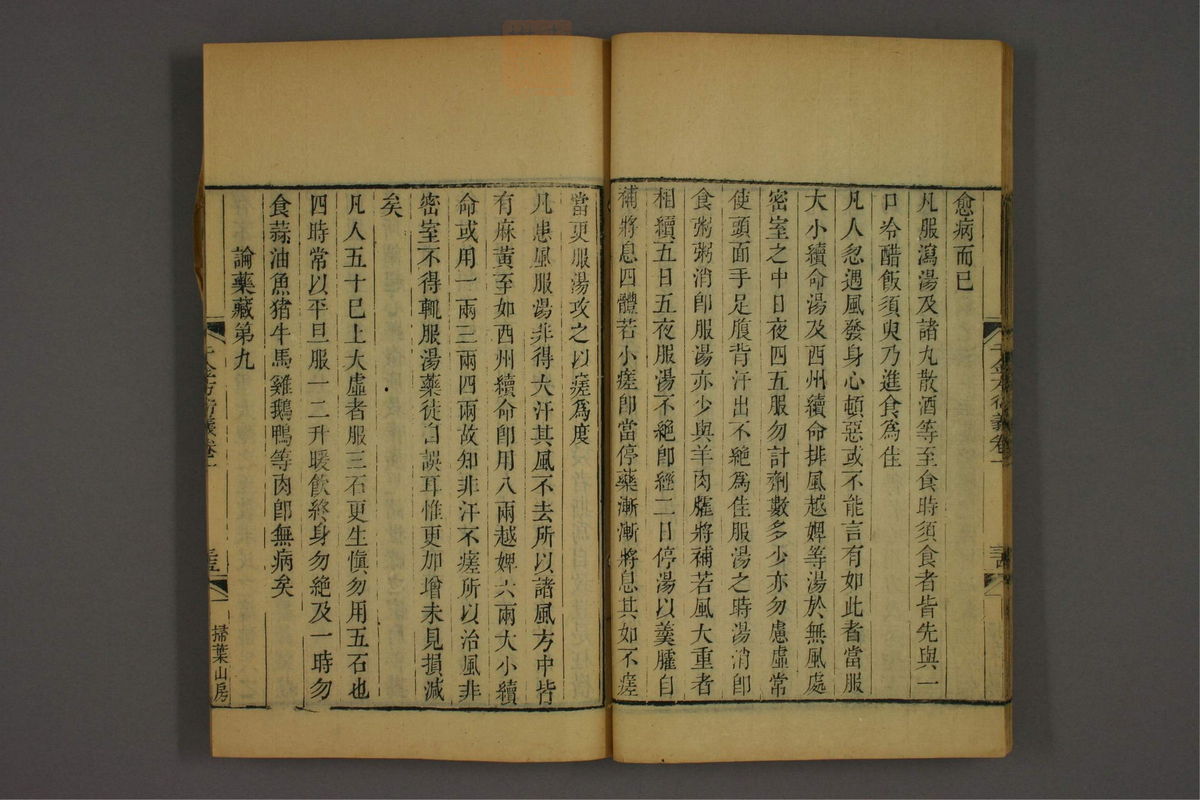 愈病而已
凡服瀉湯及諸丸散酒等至食時須食者皆先與一
口冷醋飯須臾乃進食為佳
凡人忽遇風發身心頓惡或不能言有如此者當服
大小續命湯及西州續命排風越婢等湯於無風處
密室之中日夜四五服勿計劑數多少亦勿慮虛常
使頭面手足腹背汗出不絕為佳服湯之時湯消卽
食粥粥消卽服湯亦少與羊肉臛將補若風大重者
相續五日五夜服湯不絕卽經二日停湯以羹臛自
補將息四體若小瘥卽當停藥漸漸將息其如不瘥
當更服湯攻之以瘥為度
凡患風服湯非得大汗其風不去所以諸風方中皆
有麻黃至如西州續命卽用八兩越婢六兩大小續
命或用一兩三兩四兩故知非汗不瘥所以治風非
密室不得輒服湯藥徒自誤耳惟更加增未見損減
矣
凡人五十已上大虛者服三石更生慎勿用五石也
四時常以平旦服一二升暖飲終身勿絕及一時勿
食蒜油魚猪牛馬雞鵝鴨等肉卽無病矣
論藥藏第九
千金方衍義卷一
掃葉山房